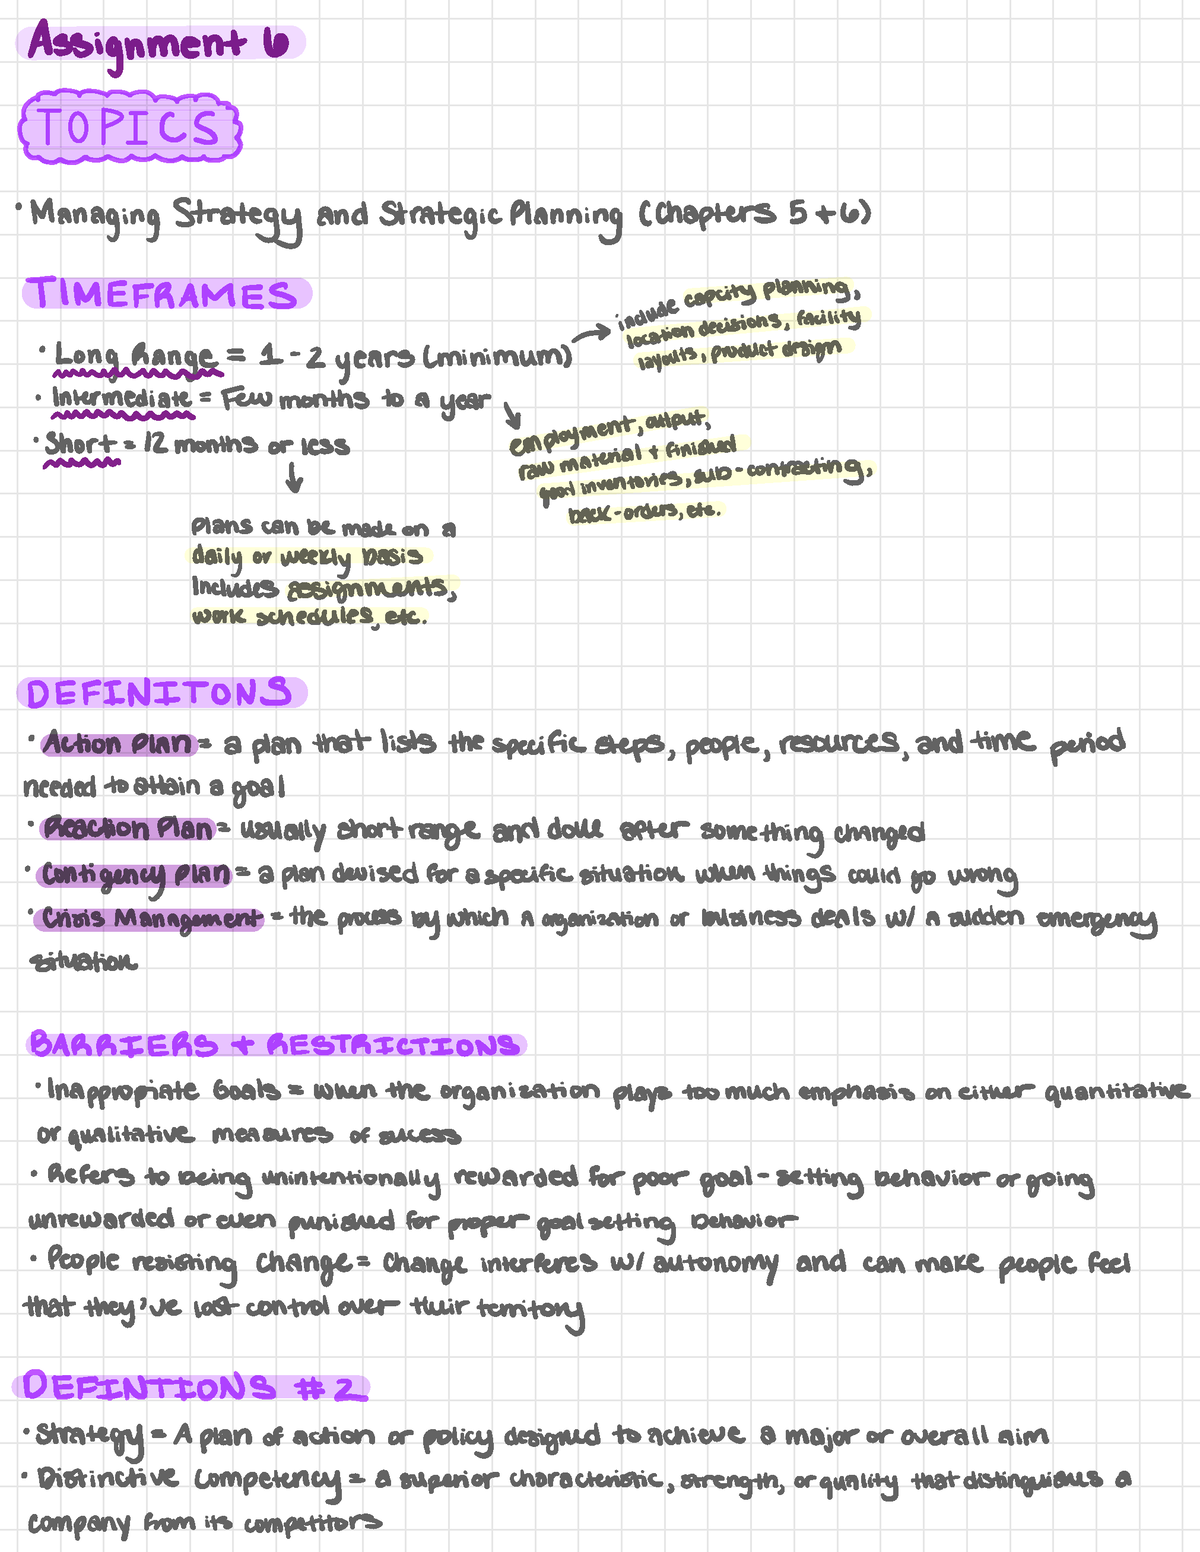 Assignment 6
TOPICS
• Managing Strategy and Strategic Planning (Chapters 5 + 6)
TIMEFRAMES
• Long Range = 1 - 2 years (minimum) →
include capcity planning,
location decisions, facility
layouts, product design
• Intermediate = Few months to a year ↘
employment, output,
raw material + finished
good inventories, sub-contracting,
back-orders, etc.
• Short = 12 months or less
↓
Plans can be made on a
daily or weekly basis
Includes assignments,
work schedules, etc.
DEFINITONS
• Action Plan = a plan that lists the specific steps, people, resources, and time period
needed to attain a goal
• Reaction Plan = usually short range and done after something changed
• Contigency Plan = a plan devised for a specific situation when things could go wrong
• Crisis Management = the process by which a organization or business deals w/ a sudden emergency
situation
BARRIERS + RESTRICTIONS
• Inappropiate Goals = when the organization plays too much emphasis on either quantitative
or qualitative measures of sucess
• Refers to being unintentionally rewarded for poor goal-setting behavior or going
unrewarded or even punished for proper goal setting behavior
• People resisting change = Change interferes w/ autonomy and can make people feel
that they've lost control over their territory
DEFINTIONS #2
• Strategy = A plan of action or policy designed to achieve a major or overall aim
• Distinctive Competency = a superior characteristic, strength, or quality that distinguishes a
company from its competitors